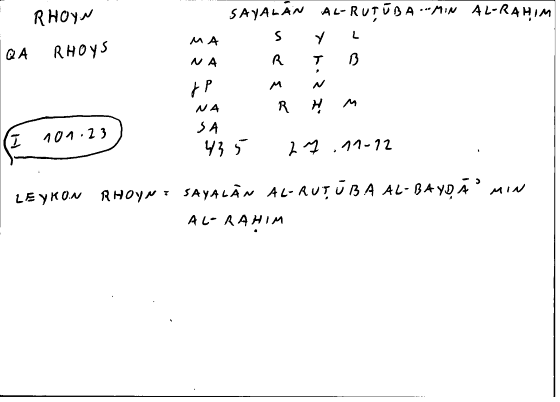 RHOYN SAYALĀN AL-RUṬŪBA...MIN AL-RAḤIM
QA RHOYS
MA S Y L
NA R Ṭ B
M N
NA R Ḥ M
SA
I 101.23
435 27.11-12
LEYKON RHOYN = SAYALĀN AL-RUṬŪBA AL-BAYḌĀʾ MIN
AL-RAḤIM